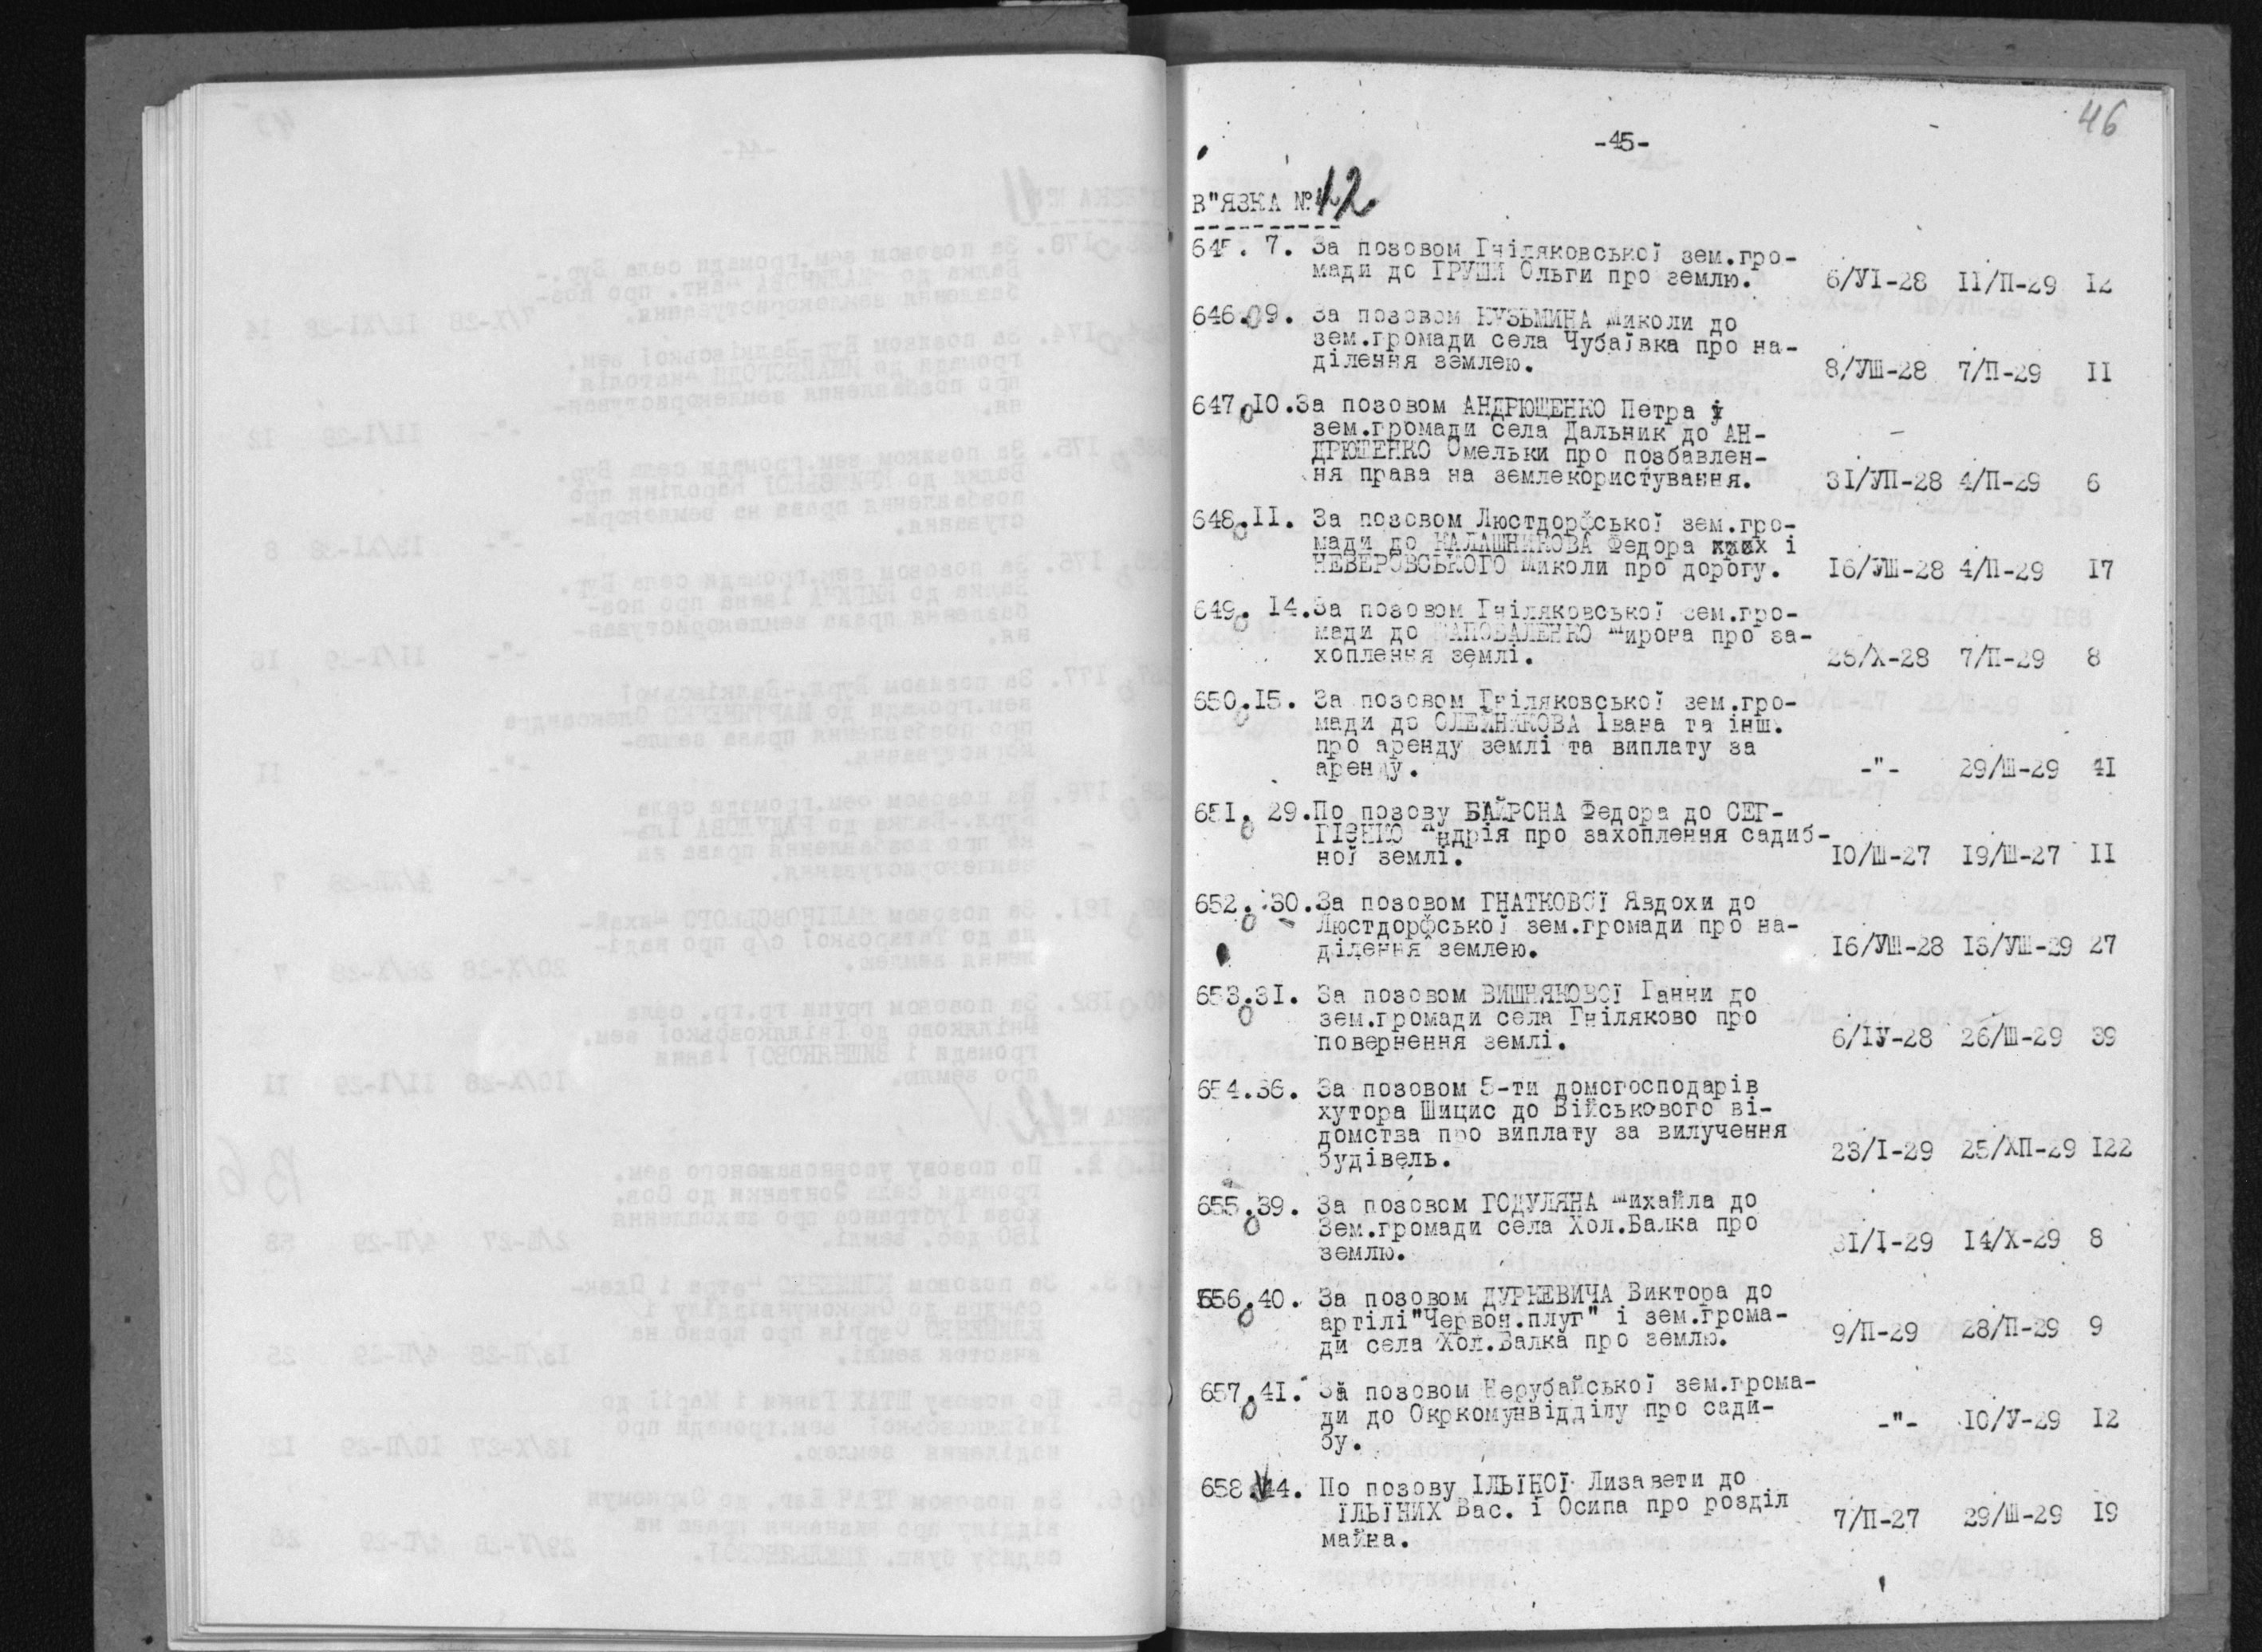 46
-45-
В"ЯЗКА № 12
645. 7. За позовом Гніляковської зем.гро-
мади до ГРУШИ Ольги про землю. 6/УІ-28 11/П-29 12
646. 9. За позовом КУЗЬМИНА Миколи до
зем.громади села Чубаївка про на-
ділення землею. 8/УШ-28 7/П-29 ІІ
647. 10. За позовом АНДРЮЩЕНКО Петра і
зем.громади села Дальник до АН-
ДРЮЩЕНКО Омельки про позбавлен-
ня права на землекористування. 3І/УП-28 4/П-29 6
648. ІІ. За позовом Люстдорфської зем.гро-
мади до КАЛАШНИКОВА Федора і
НЕВЕРОВСЬКОГО Миколи про дорогу. І6/УШ-28 4/П-29 І7
649. 14. За позовом Гніляковської зем.гро-
мади до ШАПОВАЛЕНКО Мирона про за-
хоплення землі. 26/Х-28 7/П-29 8
650. І5. За позовом Гніляковської зем.гро-
мади до ОЛЕЙНИКОВА Івана та інш.
про аренду землі та виплату за
аренду. -"- 29/Ш-29 4І
65І. 29. По позову БАЙРОНА Федора до СЕГ-
ГІЄНКО Андрія про захоплення садиб-
ної землі. ІО/Ш-27 І9/Ш-27 ІІ
652. 30. За позовом ГНАТКОВОЇ Явдохи до
Люстдорфської зем.громади про на-
ділення землею. І6/УШ-28 І5/УШ-29 27
653. 3І. За позовом ВИШНЯКОВОЇ Ганни до
зем.громади села Гніляково про
повернення землі. 6/ІУ-28 26/Ш-29 39
654. 36. За позовом 5-ти домогосподарів
хутора Шицис до Військового ві-
домства про виплату за вилучення
будівель. 23/І-29 25/ХП-29 І22
655. 39. За позовом ГОДУЛЯНА Михайла до
Зем.громади села Хол.Балка про
землю. 3І/І-29 І4/Х-29 8
656. 40. За позовом ДУРКЕВИЧА Виктора до
артілі"Червон.плуг" і зем.грома-
ди села Хол.Балка про землю. 9/П-29 28/П-29 9
657. 4І. За позовом Нерубайської зем.грома-
ди до Окркомунвідділу про сади-
бу. -"- ІО/У-29 І2
658. 44. По позову ІЛЬЇНОЇ Лизавети до
ІЛЬЇНИХ Вас. і Осипа про розділ
майна. 7/П-27 29/Ш-29 І9